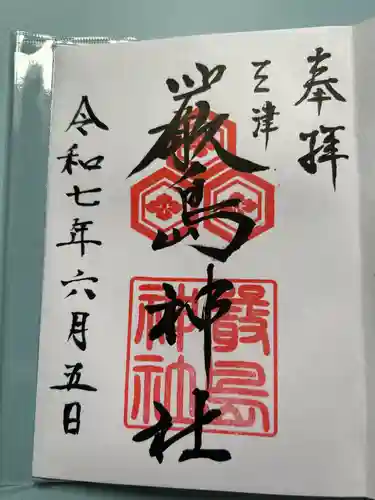 奉拝
三津
厳島神社
嚴島神社
令和七年六月五日